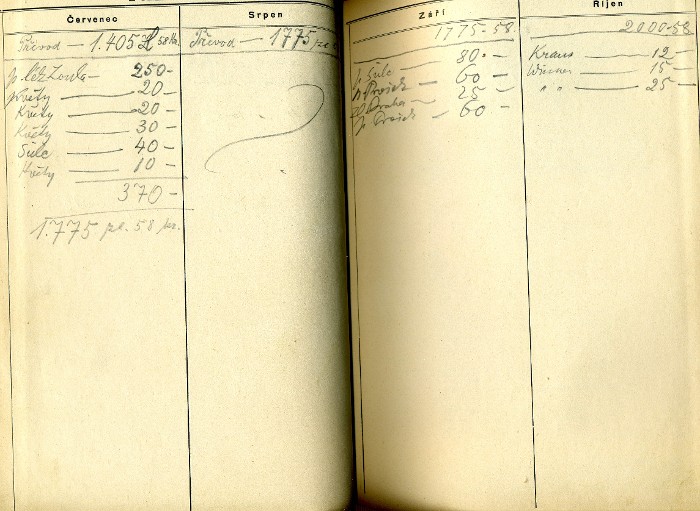 Červenec
Převod — 1.405 K 58 ha.
250-
Květy — 20-
Květy — 20-
Květy — 30-
Šulc — 40-
Květy — 10-
370-
1.775 58
Srpen
Převod — 1775
Září
1775-58.
p Šulc — 80.-
60-
25-
60-
Říjen
2000-58
Kraus — 12-
15-
" " — 25-